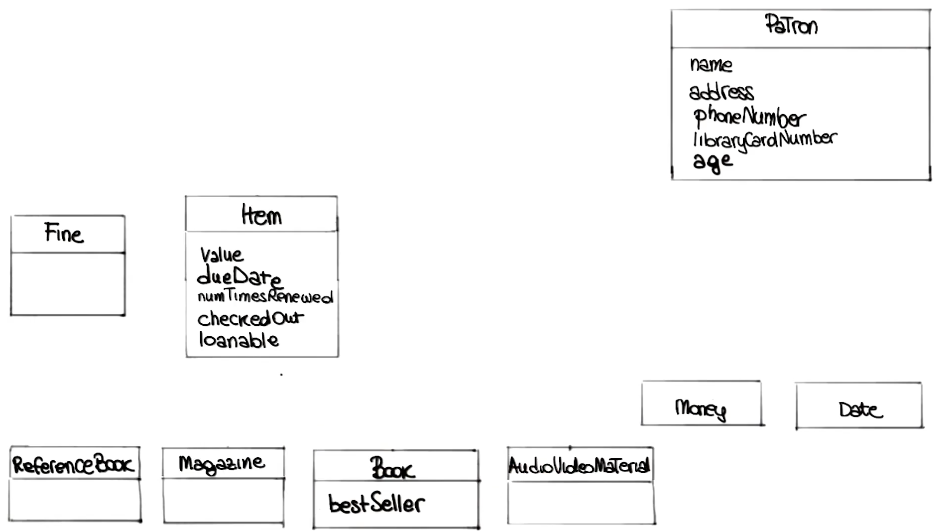 Patron
name
address
phoneNumber
libraryCardNumber
age
Fine
Item
value
dueDate
numTimesRenewed
checkedOut
loanable
Money
Date
ReferenceBook
Magazine
Book
bestSeller
AudioVideoMaterial